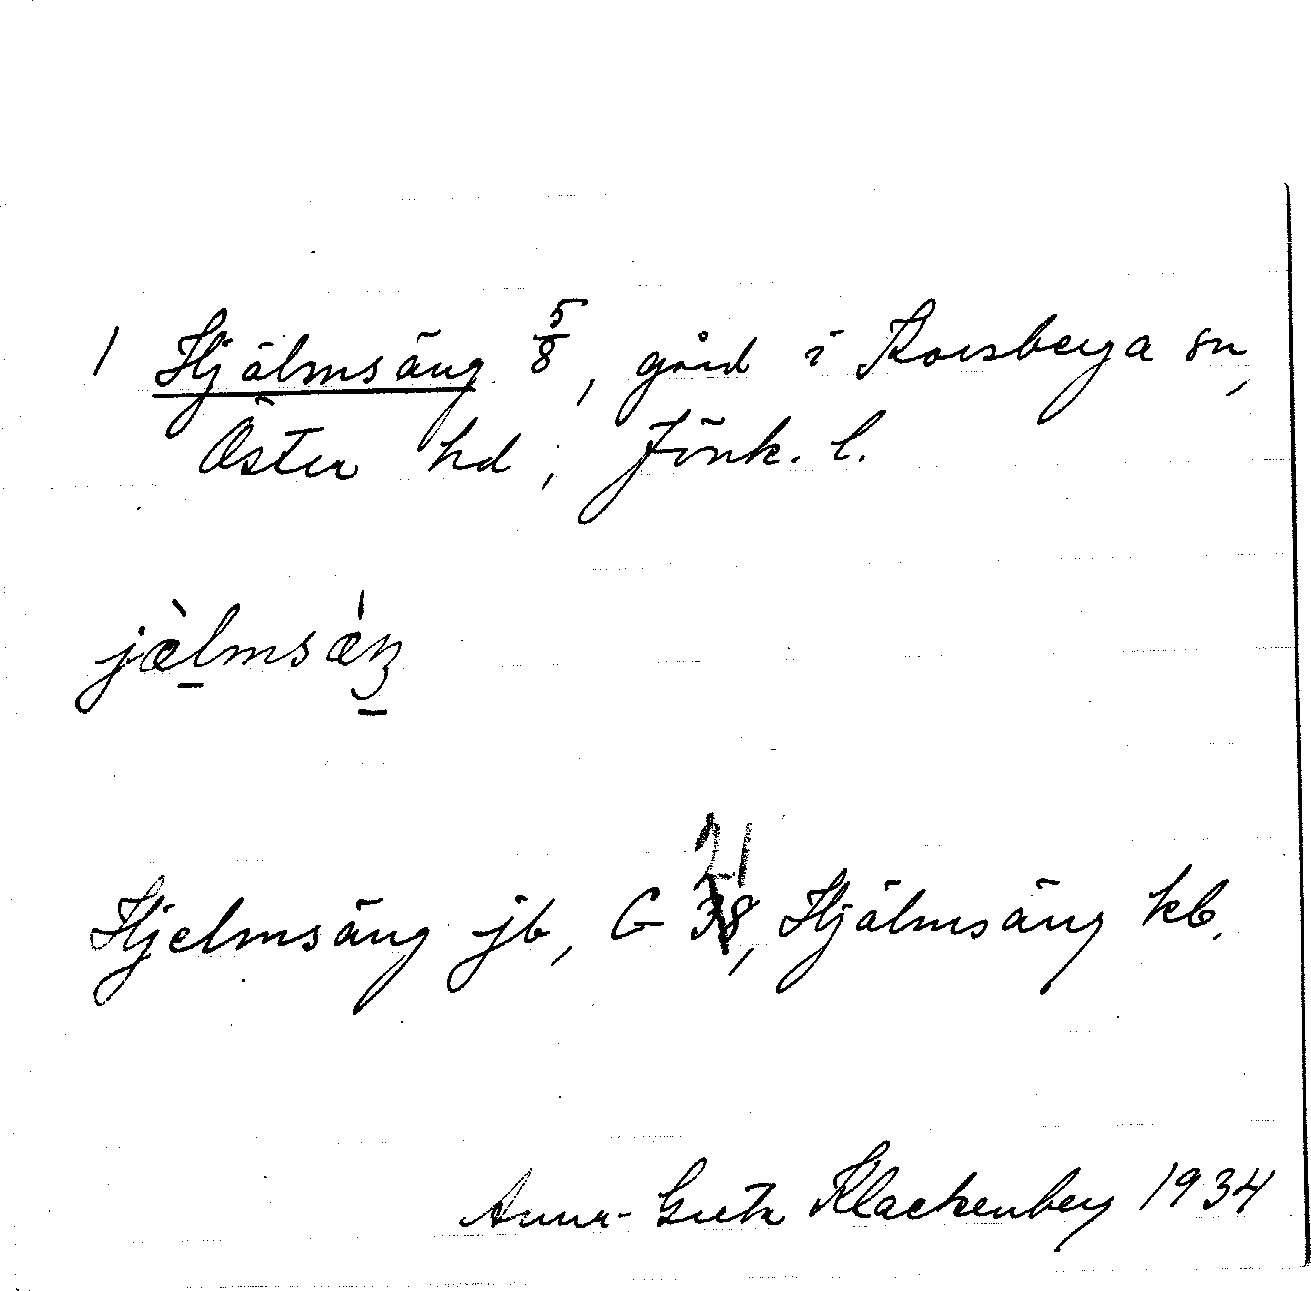 1 Hjälmsäng 5/8, gård i Korsberga sn,
Öster hd, Jönk. l.
jæ̀lmsǽŋ
Hjelmsäng jb, G 21 38, Hjälmsäng kb.
Anna-Greta Klackenberg 1934